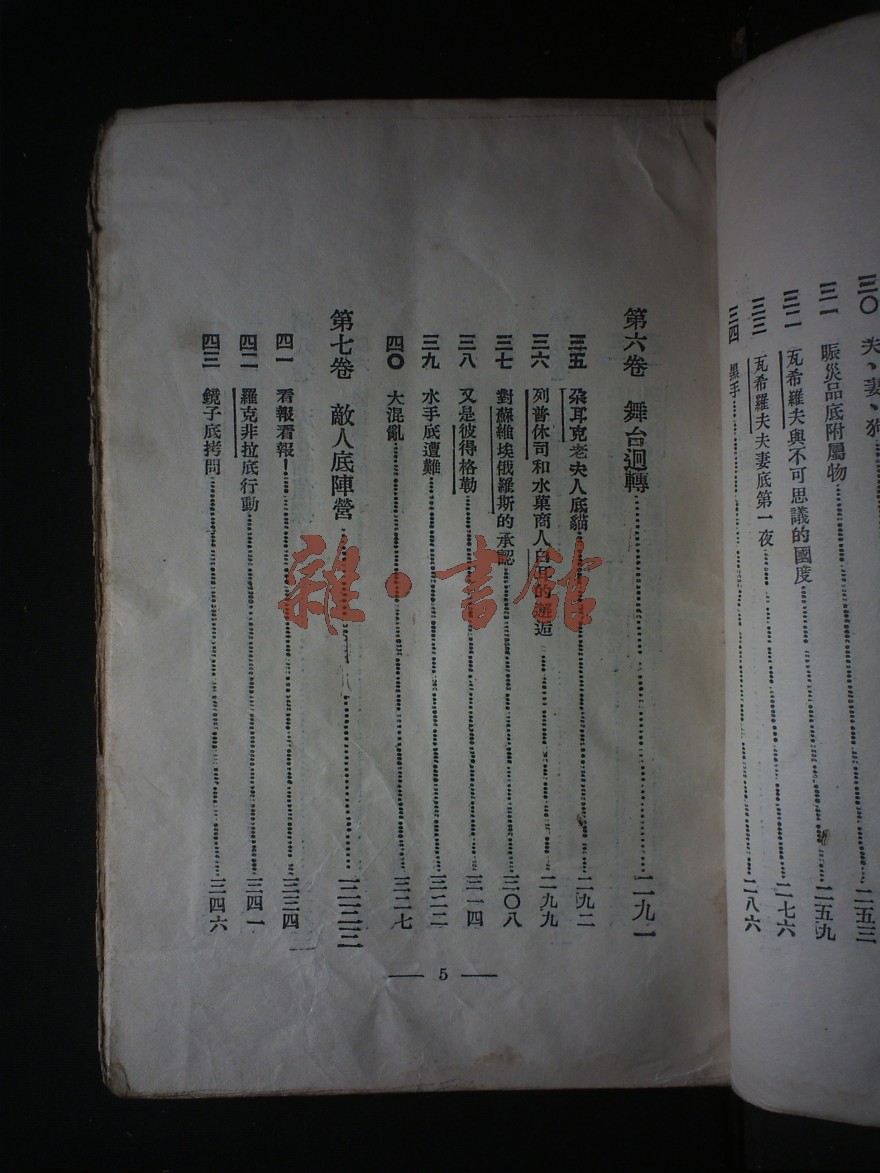 三〇 夫、妻、狗
二五三
三一 賑災品底附屬物……二五九
三二 瓦希羅夫與不可思議的國度……二七六
三三 瓦希羅夫夫妻底第一夜
三四 黑手……二八六
第六卷 舞台迴轉……二九一
三五 朶耳克老夫人底貓……二九二
三六 列普休司和水菓商人白耳的邂逅……二九九
三七 對蘇維埃俄羅斯的承認……三〇八
三八 又是彼得格勒……三一四
三九 水手底遭難……三二二
四〇 大混亂……三二七
第七卷 敵人底陣營……三三三
四一 看報看報!……三三四
四二 羅克非拉底行動……三四一
四三 鏡子底拷問……三四六
— 5 —
雜·書館